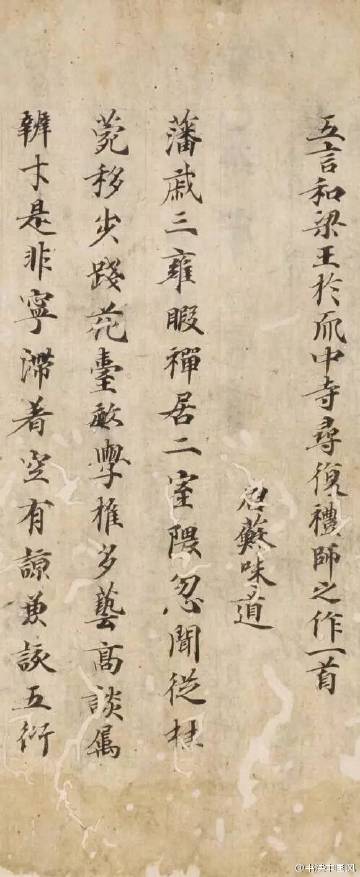 五言和梁王於中寺尋復禮師之作一首
𢘑蘇味道
藩戚三雍暇禪居二室隈忽聞從桂
菀移步踐花臺敏學推多藝高談屬
辨才是非寧滯着空有諒兼該五衍